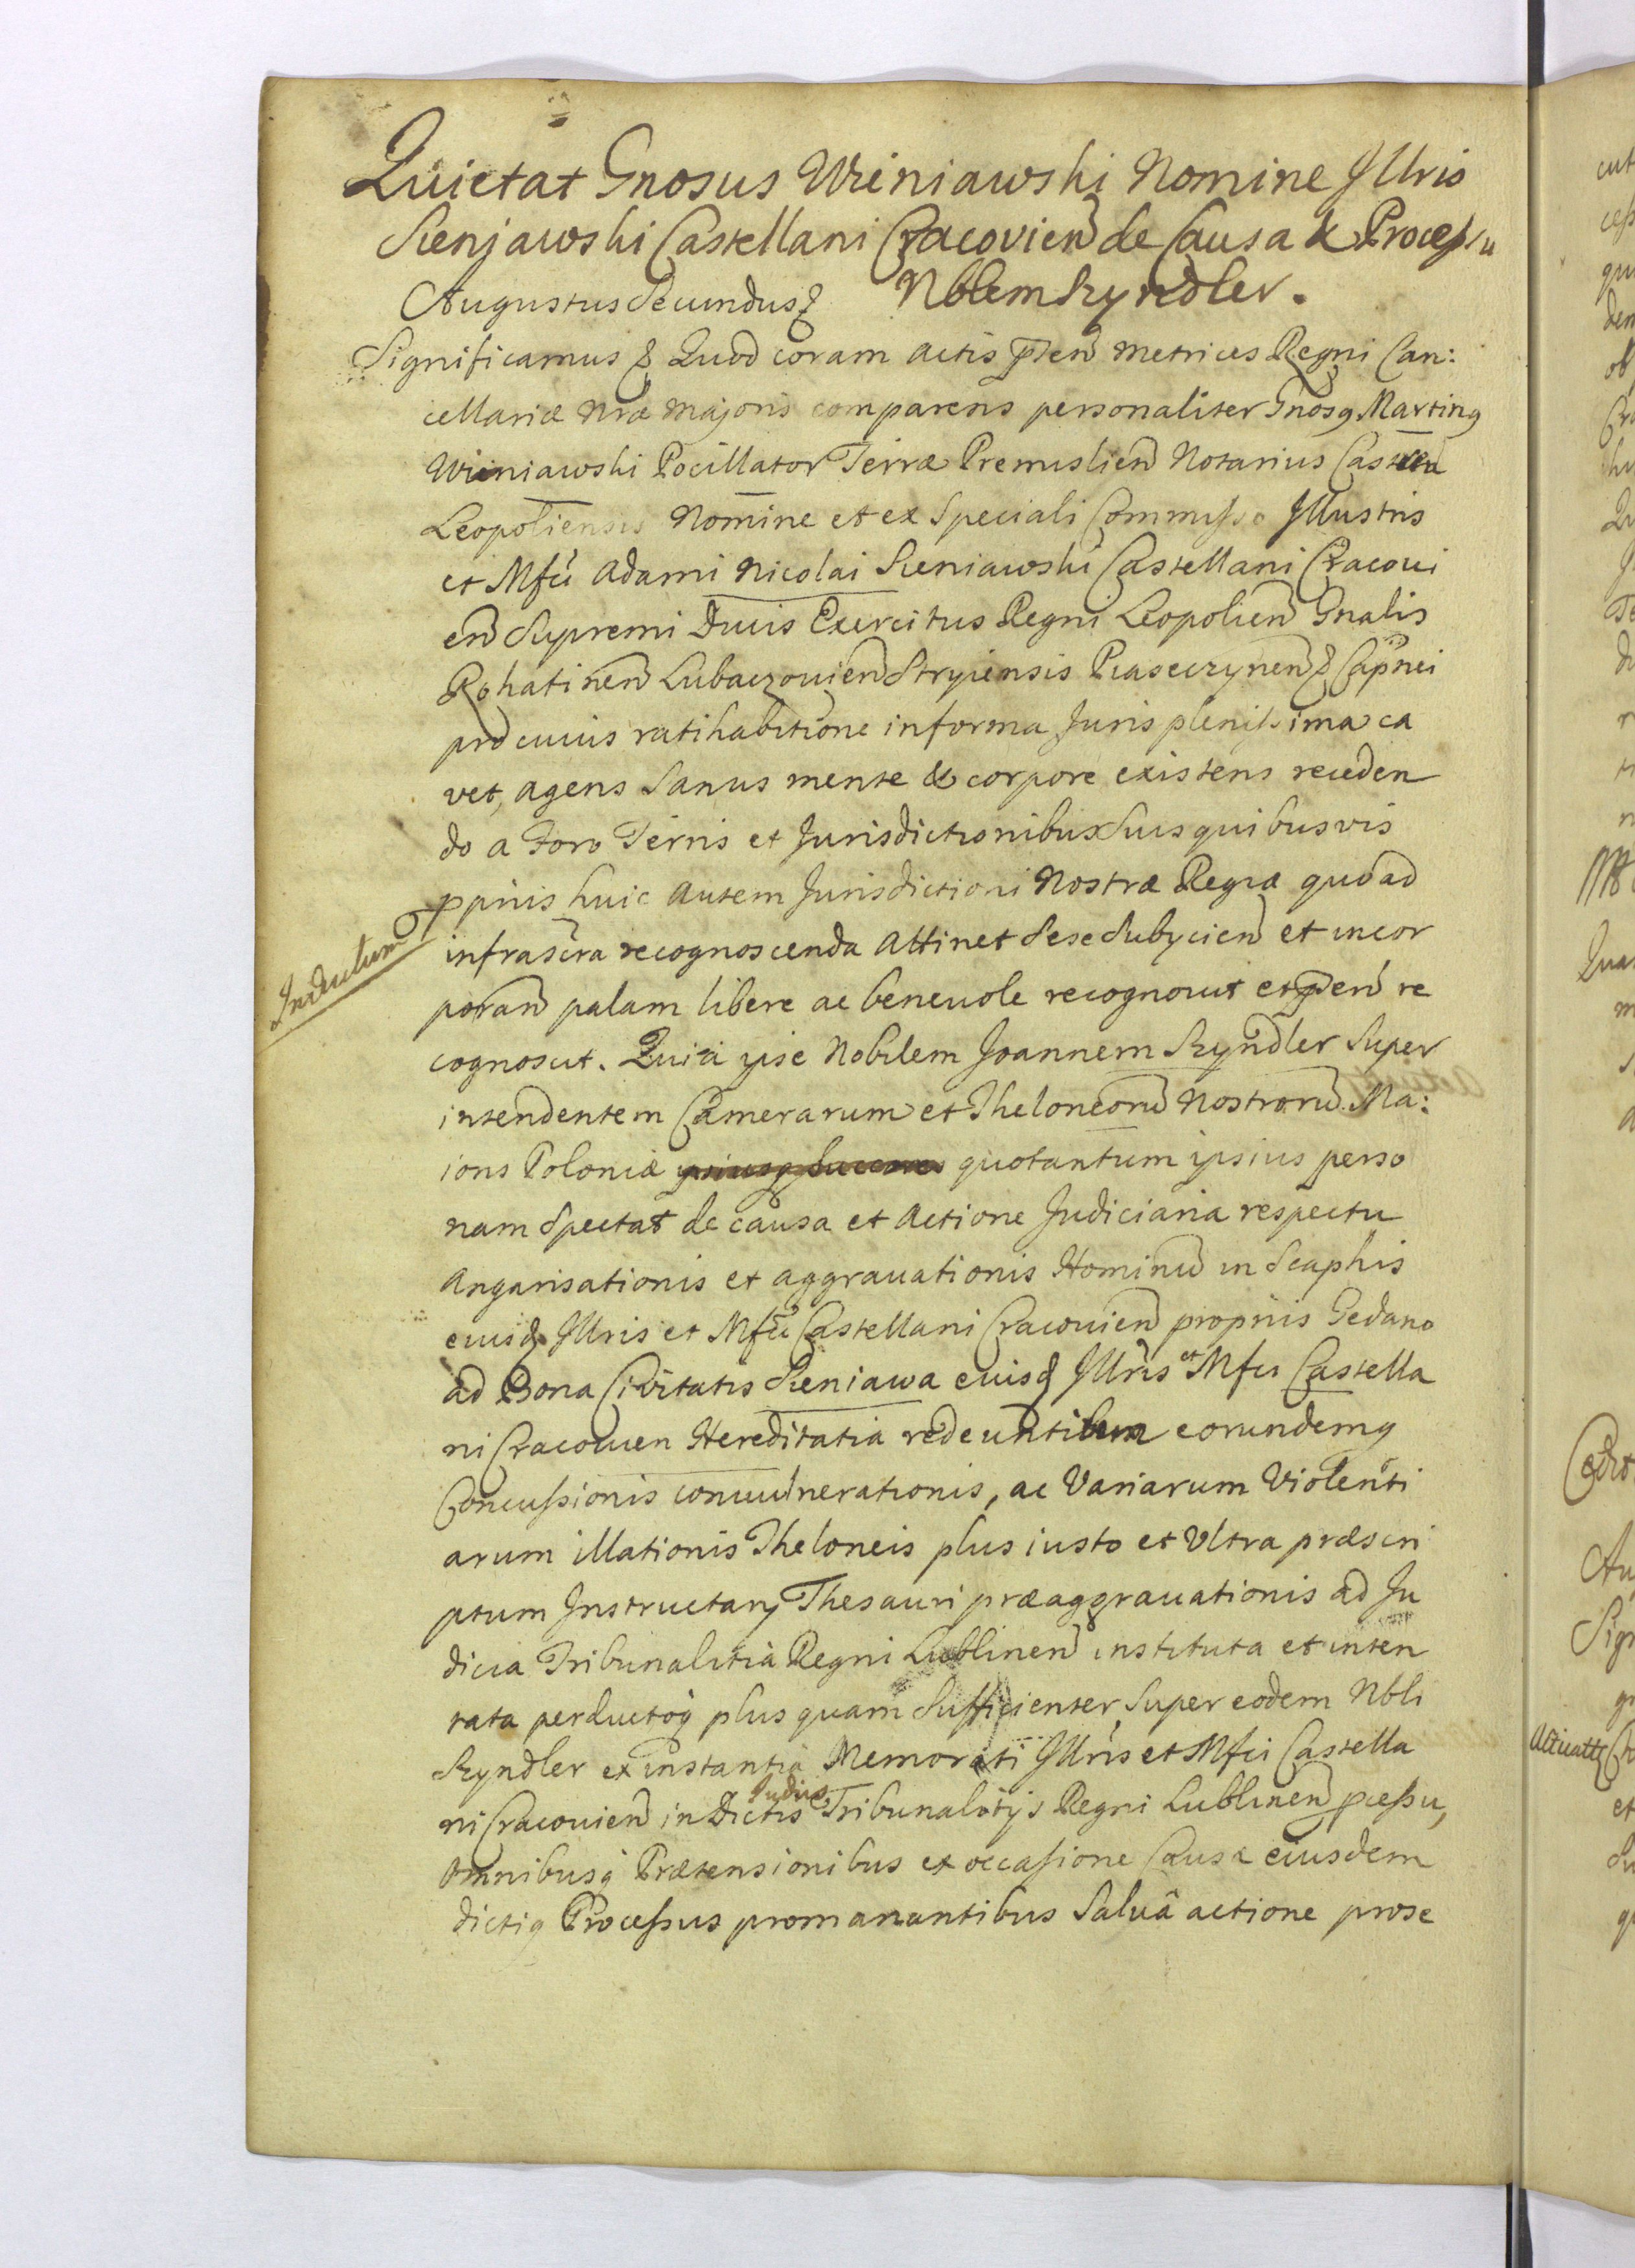 Quietat Gnosus Wieniawski Nomine Jllris
Sieniawski Castellani Cracovien de Causa & Processu
Nblem Szyndler.
Augustus Secundus &
Significamus & Quod coram Actis pñten Metrices Regni Can:
cellariæ Nræ Majoris comparens personaliter Gnosq Martinq
Wieniawski Pocillator Terræ Premislien Notarius Castren
Leopoliensis Nomine et ex Speciali Commisso Jllustris
et Mfci Adami Nicolai Sieniawski Castellani Cracoui
en Supremi Ducis Exercitus Regni Leopolien Gnalis
Rohatinen Lubaczouien Stryiensis Piaseczynen & Capnei
pro cuius ratihabitione in forma Juris plenissima ca
vet, agens Sanus mente & corpore existens receden
do a Foro Terris et Jurisdictionibus Suis quibusvis
pprijs huic autem Jurisdictioni Nostræ Regiæ quoad
Inductum
infrascra recognoscenda Attinet Sese Subijcien et incor
poran palam libere ac beneuole recognouit et pñten re
cognoscit. Quia ipse Nobilem Joannem Szyndler Super
intendentem Camerarum et Theloneorũ Nostrorũ Ma:
ioris Poloniæ quotantum ipsius perso
nam Spectat de causa et Actione Judiciaria respectu
Angarisationis et aggrauationis Hominũ in Scaphis
eiusd Jllris et Mfci Castellani Cracouien proprijs Gedano
ad Bona Civitatis Sieniawa eiusd Jllris et Mfci Castella
ni Cracouien Hereditatia redeuntibus eorundemq
Concussionis conuulnerationis, ac Variarum Violenti
arum illationis Theloneis plus iusto et Vltra præscri
ptum Instructarij Thesauri præaggrauationis ad Ju
dicia Tribunalitia Regni Lublinen instituta et inten
tata perductoq plus quam Sufficienter Super eodem Nbli
Szyndler ex instantia Memorati Jllris et Mfci Castella
ni Cracouien in Dictis Judiciis Tribunalitijs Regni Lublinen pcessu,
omnibusq Prætensionibus ex occasione Causæ eiusdem
dictiq Processus promanantibus Saluâ actione prose